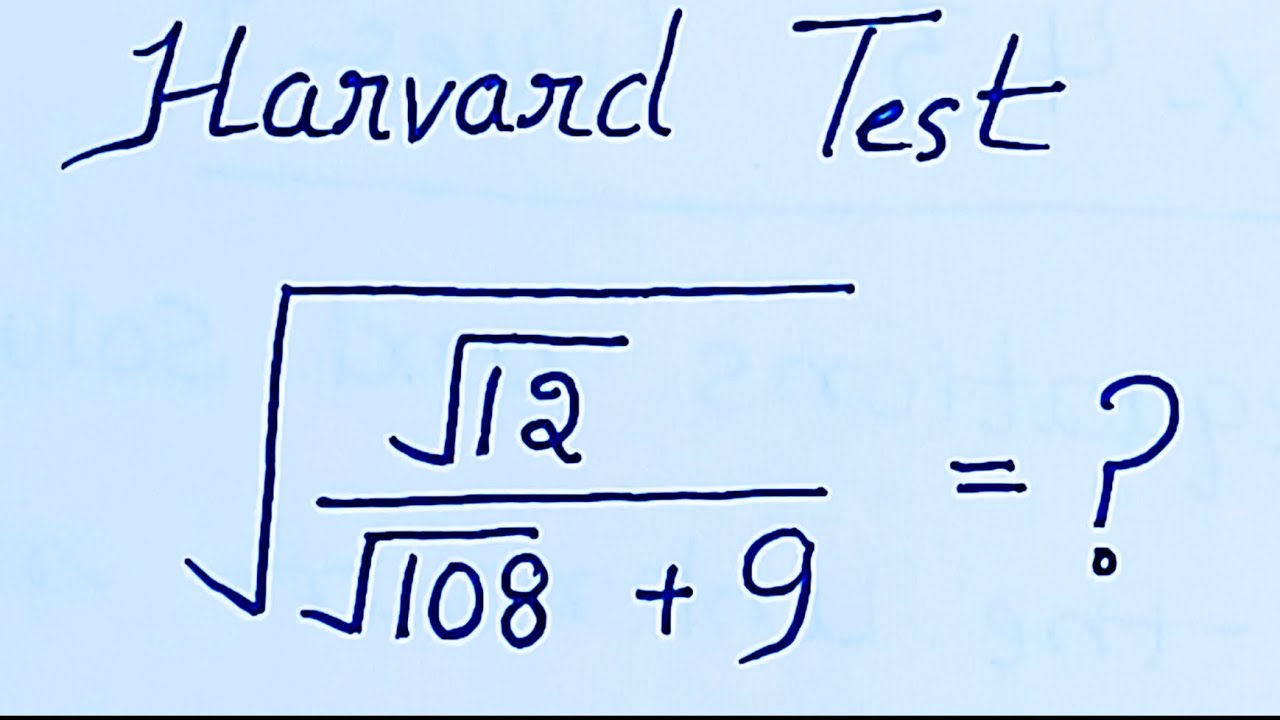 Harvard Test
√(√12 / (√108 + 9)) = ?